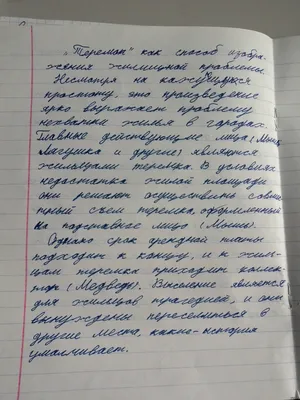 „Теремок" как способ изобра-
жения жилищной проблемы.
Несмотря на кажущуюся
простоту, это произведение
ярко выражает проблему
нехватки жилья в городах.
Главные действующие лица (Мышка,
Лягушка и другие) являются
жильцами теремка. В условиях
недостатка жилой площади
они решают осуществить совмест-
ный съём теремка, оформленный
на подставное лицо (Мышь).
Однако срок арендной платы
подходит к концу, и к жиль-
цам теремка приходит коллек-
тор (Медведь). Выселение является
для жильцов трагедией, и они
вынуждены переселиться в
другие места, какие - история
умалчивает.